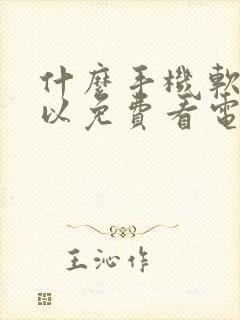 什麼手機軟
以免費看電
王沁作